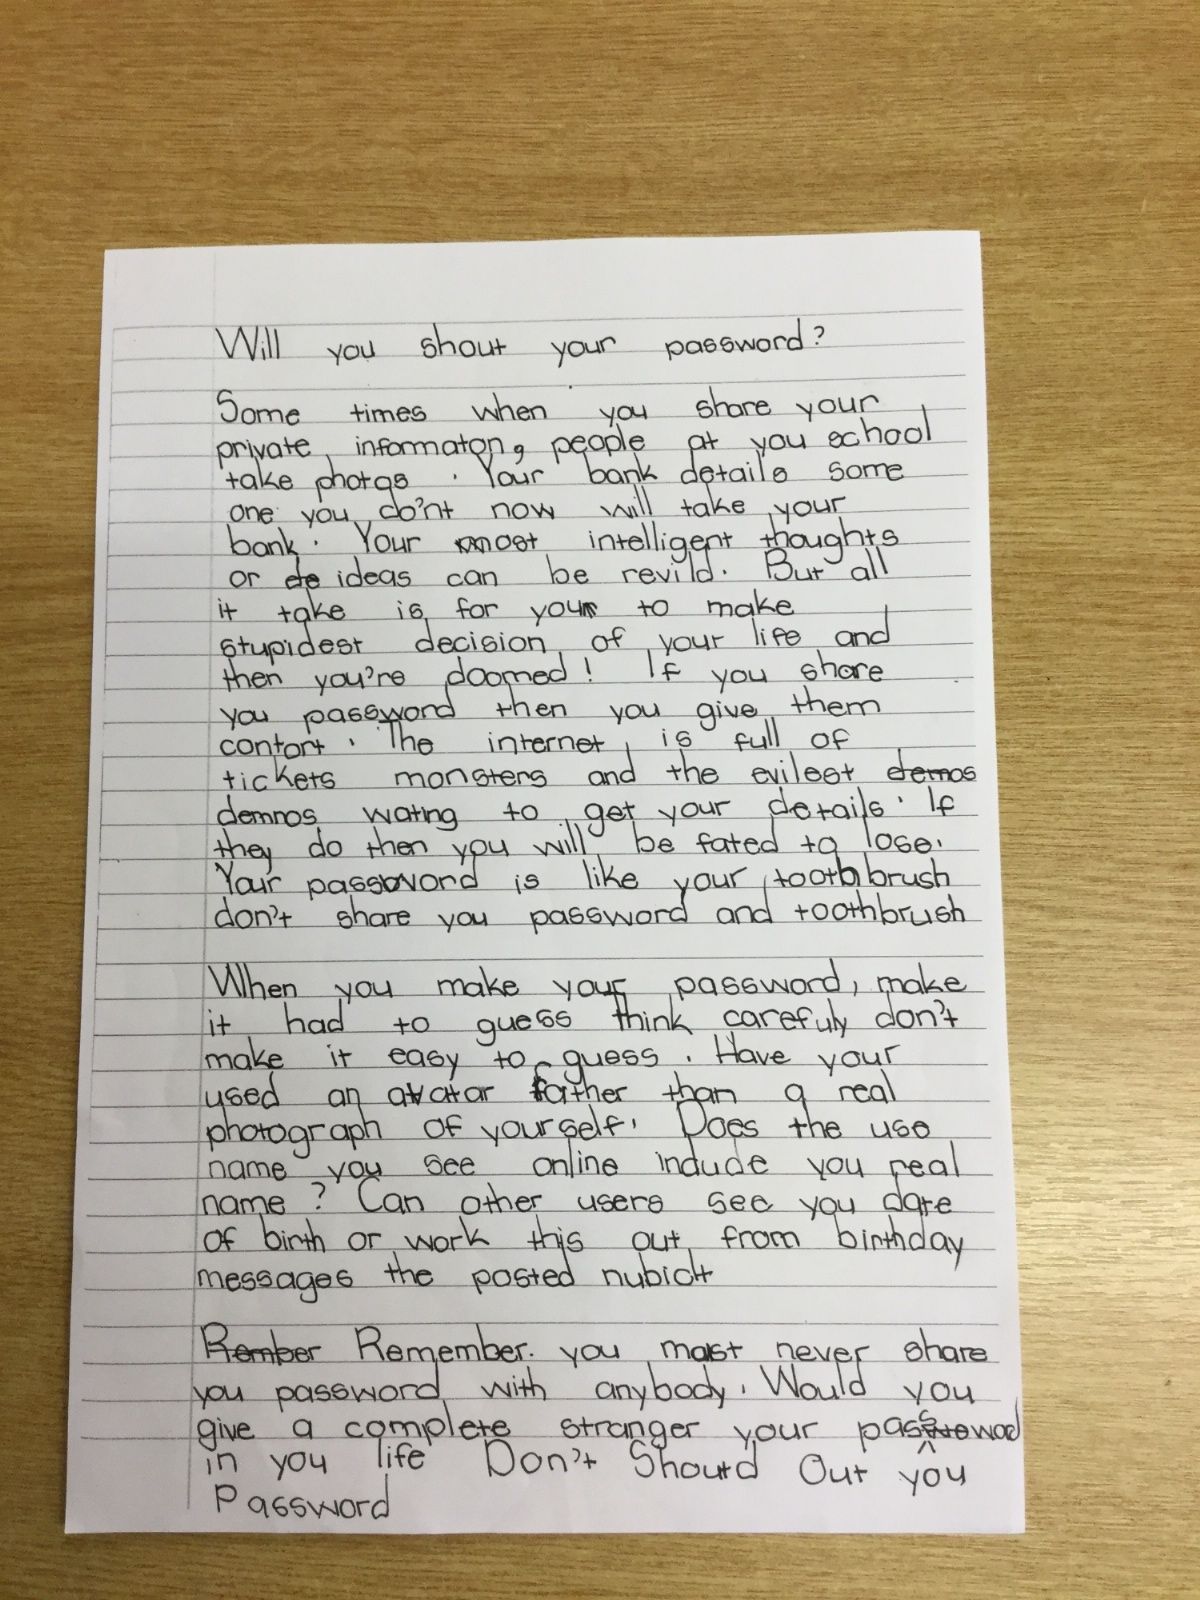 Will you shout your password?
Some times when you share your
private informaton, people at you school
take photos. Your bank details some
one you do'nt now will take your
bank. Your most intelligent thoughts
or de ideas can be revild. But all
it take is for your to make
stupidest decision of your life and
then you're doomed! If you share
you password then you give them
contort. The internet is full of
tickets monsters and the evilest demos
demnos wating to get your details. If
they do then you will be fated to lose.
Your password is like your toothbrush
don't share you password and toothbrush
When you make your password, make
it had to guess think carefuly don't
make it easy to guess. Have your
used an avatar rather than a real
photograph of yourself. Does the use
name you see online include you real
name? Can other users see you date
of birth or work this out from birthday
messages the posted
Rember Remember. you mast never share
you password with anybody. Would you
give a complete stranger your
in you life Don't Shoutd Out you
Password